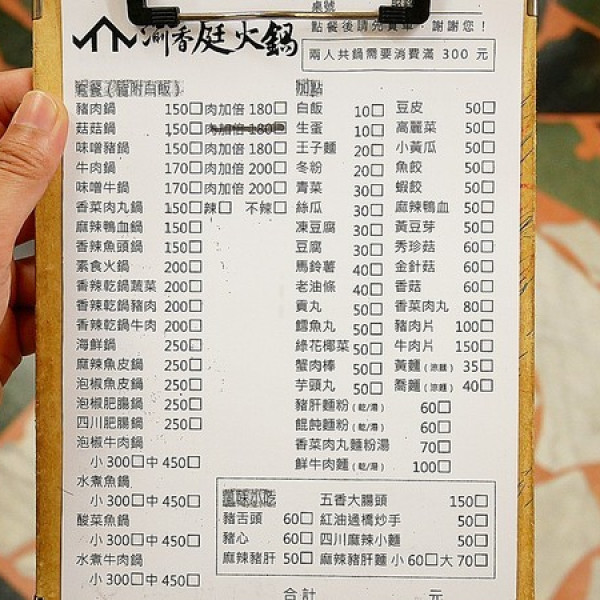 桌號
渝香庭火鍋
點餐後請先買單,謝謝您!
兩人共鍋需要消費滿 300 元
套餐(皆附白飯)
豬肉鍋 150□ 肉加倍 180□
菇菇鍋 150□ 肉加倍 180□
味噌豬鍋 150□ 肉加倍 180□
牛肉鍋 170□ 肉加倍 200□
味噌牛鍋 170□ 肉加倍 200□
香菜肉丸鍋 150□ 辣□ 不辣□
麻辣鴨血鍋 150□
香辣魚頭鍋 150□
素食火鍋 200□
香辣乾鍋蔬菜 200□
香辣乾鍋豬肉 200□
香辣乾鍋牛肉 200□
海鮮鍋 250□
麻辣魚皮鍋 250□
泡椒魚皮鍋 250□
泡椒肥腸鍋 250□
四川肥腸鍋 250□
泡椒牛肉鍋
小 300□ 中 450□
水煮魚鍋
小 300□ 中 450□
酸菜魚鍋
小 300□ 中 450□
水煮牛肉鍋
小 300□ 中 450□
加點
白飯 10□ 豆皮 50□
生蛋 10□ 高麗菜 50□
王子麵 20□ 小黃瓜 50□
冬粉 20□ 魚餃 50□
青菜 30□ 蝦餃 50□
絲瓜 30□ 麻辣鴨血 50□
凍豆腐 30□ 黃豆芽 50□
豆腐 30□ 秀珍菇 60□
馬鈴薯 40□ 金針菇 60□
老油條 40□ 香菇 60□
貢丸 50□ 香菜肉丸 80□
鱈魚丸 50□ 豬肉片 100□
綠花椰菜 50□ 牛肉片 150□
蟹肉棒 50□ 黃麵(涼麵) 35□
芋頭丸 50□ 蕎麵(涼麵) 40□
豬肝麵粉(乾/湯) 60□
餛飩麵粉(乾/湯) 60□
香菜肉丸麵粉湯 70□
鮮牛肉麵(乾/湯) 100□
滷味小吃 五香大腸頭 150□
豬舌頭 60□ 紅油過橋炒手 50□
豬心 60□ 四川麻辣小麵 50□
麻辣豬肝 50□ 麻辣豬肝麵 小 60□ 大 70□
合計 元